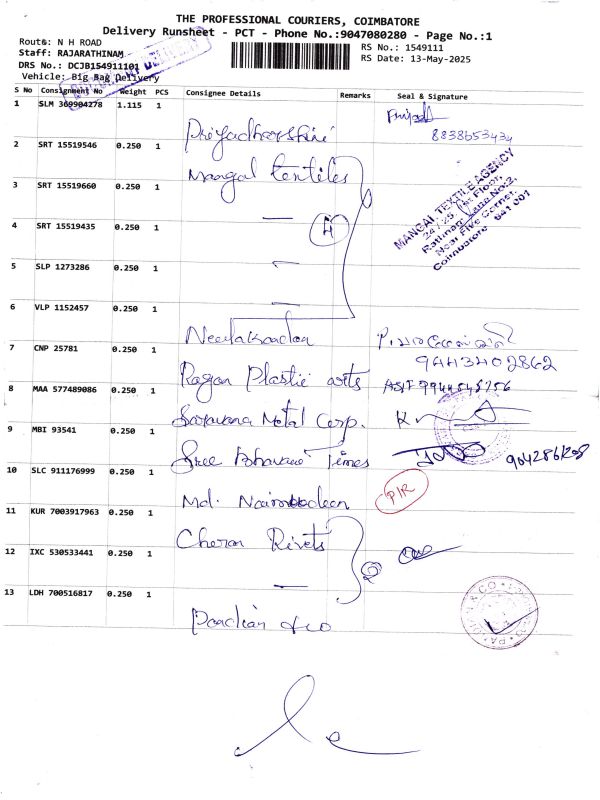 THE PROFESSIONAL COURIERS, COIMBATORE
Delivery Runsheet - PCT - Phone No.:9047080280 - Page No.:1
Route: N H ROAD
RS No.: 1549111
Staff: RAJARATHINAM
RS Date: 13-May-2025
DRS No.: DCJB154911101
Vehicle: Big Bag Delivery
S No Consignment No Weight PCS Consignee Details Remarks Seal & Signature
1 SLM 369904278 1.115 1 Priyadharshini
8838653434
2 SRT 15519546 0.250 1 Mangal textiles
3 SRT 15519660 0.250 1 —
4
4 SRT 15519435 0.250 1 —
5 SLP 1273286 0.250 1 —
MANGAL TEXTILE AGENCY
24/25, 1st Floor,
Rathinam Lane No:2,
Near Five Corner,
Coimbatore - 641 001
6 VLP 1152457 0.250 1 Neelakandan
9443402862
7 CNP 25781 0.250 1 Rajan Plastic arts
8 MAA 577489086 0.250 1 Saravana Metal Corp.
9 MBI 93541 0.250 1 Sree Bhavani Times
10 SLC 911176999 0.250 1 Md.
PIR
11 KUR 7003917963 0.250 1 Cheran Rivets
12 IXC 530533441 0.250 1 —
2
13 LDH 700516817 0.250 1 Pandian & co